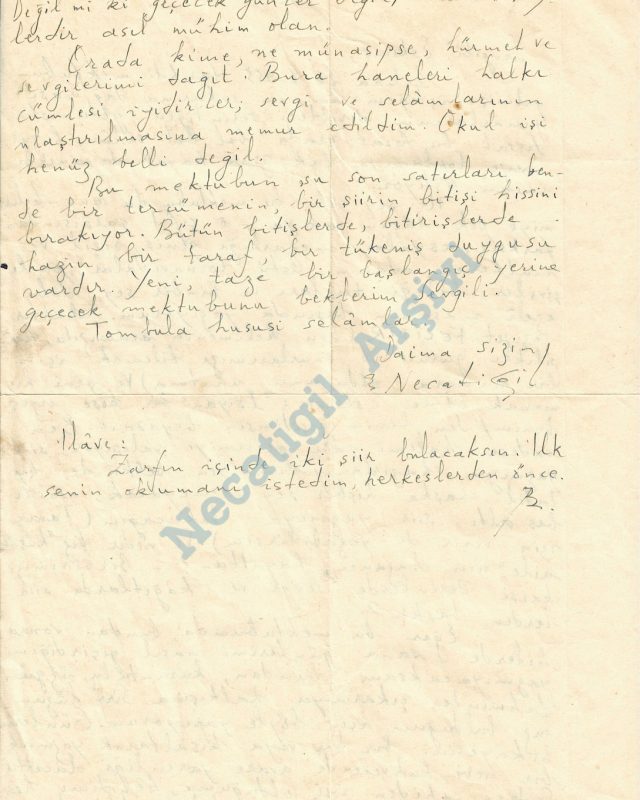 Değil mi ki geçecek günler
lerdir asıl mühim olan.
Orada kime, ne münasipse, hürmet ve
sevgilerimi dağıt. Bura haneleri halkı
cümlesi iyidirler; sevgi ve selâmlarının
ulaştırılmasına memur edildim. Okul işi
henüz belli değil.
Bu mektubun şu son satırları ben-
de bir tercümenin, bir şiirin bitişi hissini
bırakıyor. Bütün bitişlerde, bitirişlerde
hazin bir taraf, bir tükeniş duygusu
vardır. Yeni, taze bir başlangıç yerine
geçecek mektubunu beklerim sevgili.
Tombula hususi selâmlar.
Daima sizin
Necatigil
İlâve:
Zarfın içinde iki şiir bulacaksın. İlk
senin okumanı istedim, herkeslerden önce.
B.
Necatigil Arşivi